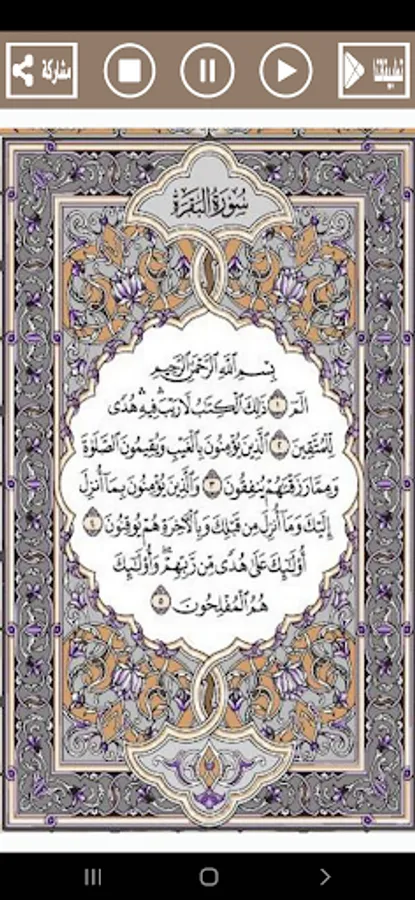 مشاركة
تطبيقاتنا
سُورَةُ البَقَرَةِ
بِسْمِ اللَّهِ الرَّحْمَٰنِ الرَّحِيمِ
الٓمٓ ۝١ ذَٰلِكَ الْكِتَٰبُ لَا رَيْبَ ۛ فِيهِ ۛ هُدًى
لِّلْمُتَّقِينَ ۝٢ الَّذِينَ يُؤْمِنُونَ بِالْغَيْبِ وَيُقِيمُونَ الصَّلَوٰةَ
وَمِمَّا رَزَقْنَٰهُمْ يُنفِقُونَ ۝٣ وَالَّذِينَ يُؤْمِنُونَ بِمَا أُنزِلَ
إِلَيْكَ وَمَا أُنزِلَ مِن قَبْلِكَ وَبِالْآخِرَةِ هُمْ يُوقِنُونَ ۝٤
أُوْلَٰٓئِكَ عَلَىٰ هُدًى مِّن رَّبِّهِمْ ۖ وَأُوْلَٰٓئِكَ
هُمُ الْمُفْلِحُونَ ۝٥